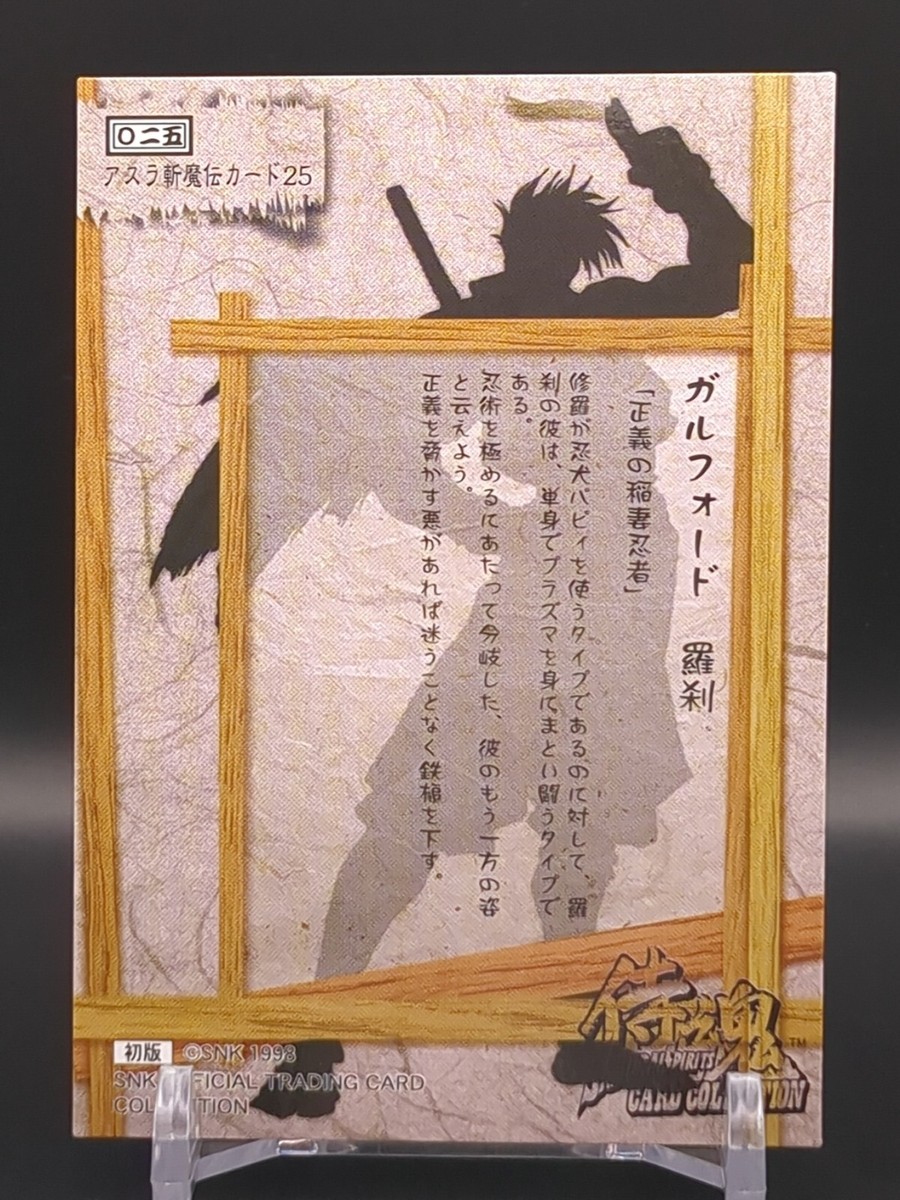 〇二五
アスラ斬魔伝カード25
ガルフォード 羅刹
「正義の稲妻忍者」
修羅が忍犬パピィを使うタイプであるのに対して、羅
刹の彼は、単身でプラズマを身にまとい闘うタイプで
ある。
忍術を極めるにあたって分岐した、彼のもう一方の姿
と云えよう。
正義を脅かす悪があれば迷うことなく鉄槌を下す。
侍之魂™
SPIRITS
CARD COLLECTION
初版 ©SNK 1998
SNK OFFICIAL TRADING CARD
COLLECTION